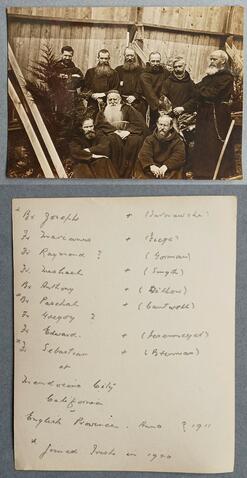 * Br Joseph +
Fr Marianus +
Fr Raymond ? (Gorman)
Fr Michael + (Smyth)
Br Anthony + (Dillon)
* Br Paschal + (Cantwell)
Fr Gregory ?
Fr Edward. +
* Fr Sebastian + (Brennan)
at
Mendocino City
California
English Province. Anno ? 1911
* Joined Irish in 1920